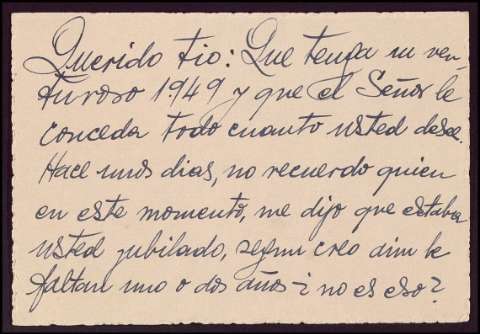 Querido tio: Que tenga un ven-
turoso 1949 y que el Señor le
conceda todo cuanto usted desee.
Hace unos dias, no recuerdo quien
en este momento, me dijo que estaba
usted jubilado, segun creo aun le
faltan uno o dos años ¿no es eso?